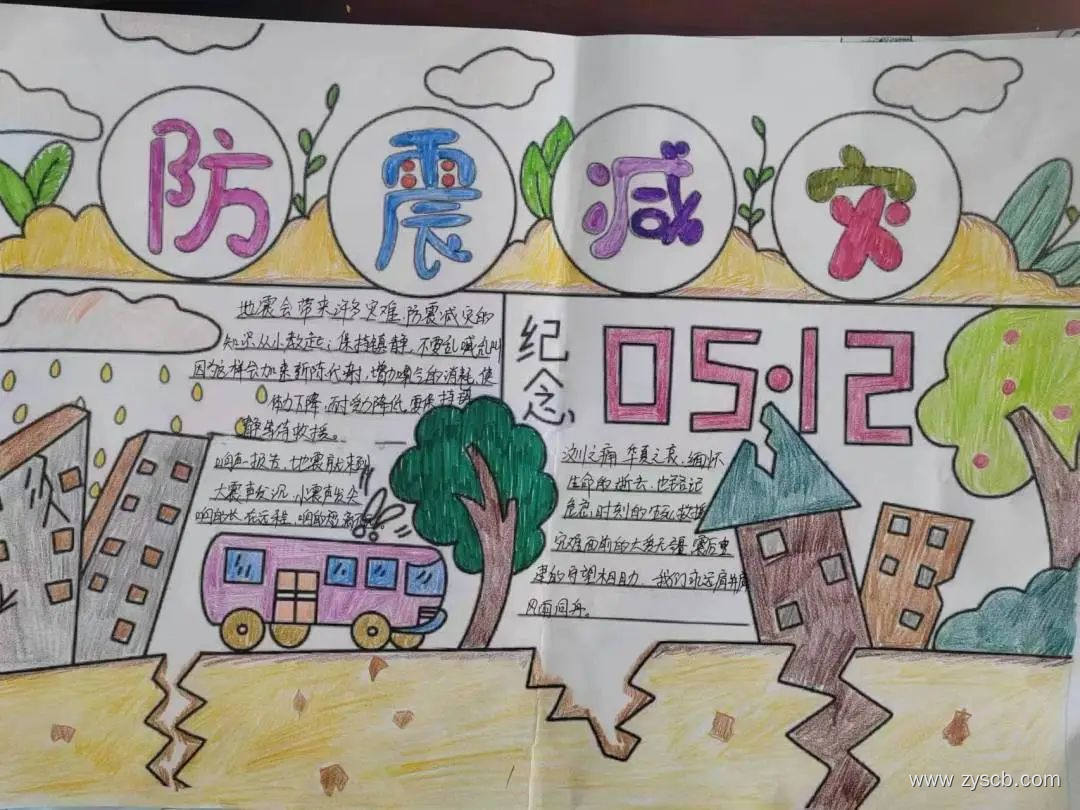 防震减灾
地震会带来许多灾难,防震减灾的
知识从小教起:保持镇静,不要乱喊乱叫
因为这样会加来新陈代谢,增加噪气的消耗,使
体力下降,耐受力降低,要保持镇
静等待救援。
响声一报告,地震就来到
大震声发沉,小震声发尖
响的长,在远程,响的
纪念
05·12
汶川之痛,华夏之哀,缅怀
生命的逝去,也铭记
危急时刻的 救援
灾难面前的大爱无疆,
的守望相助 我们永远肩并肩
风雨同舟。
www.zyscb.com